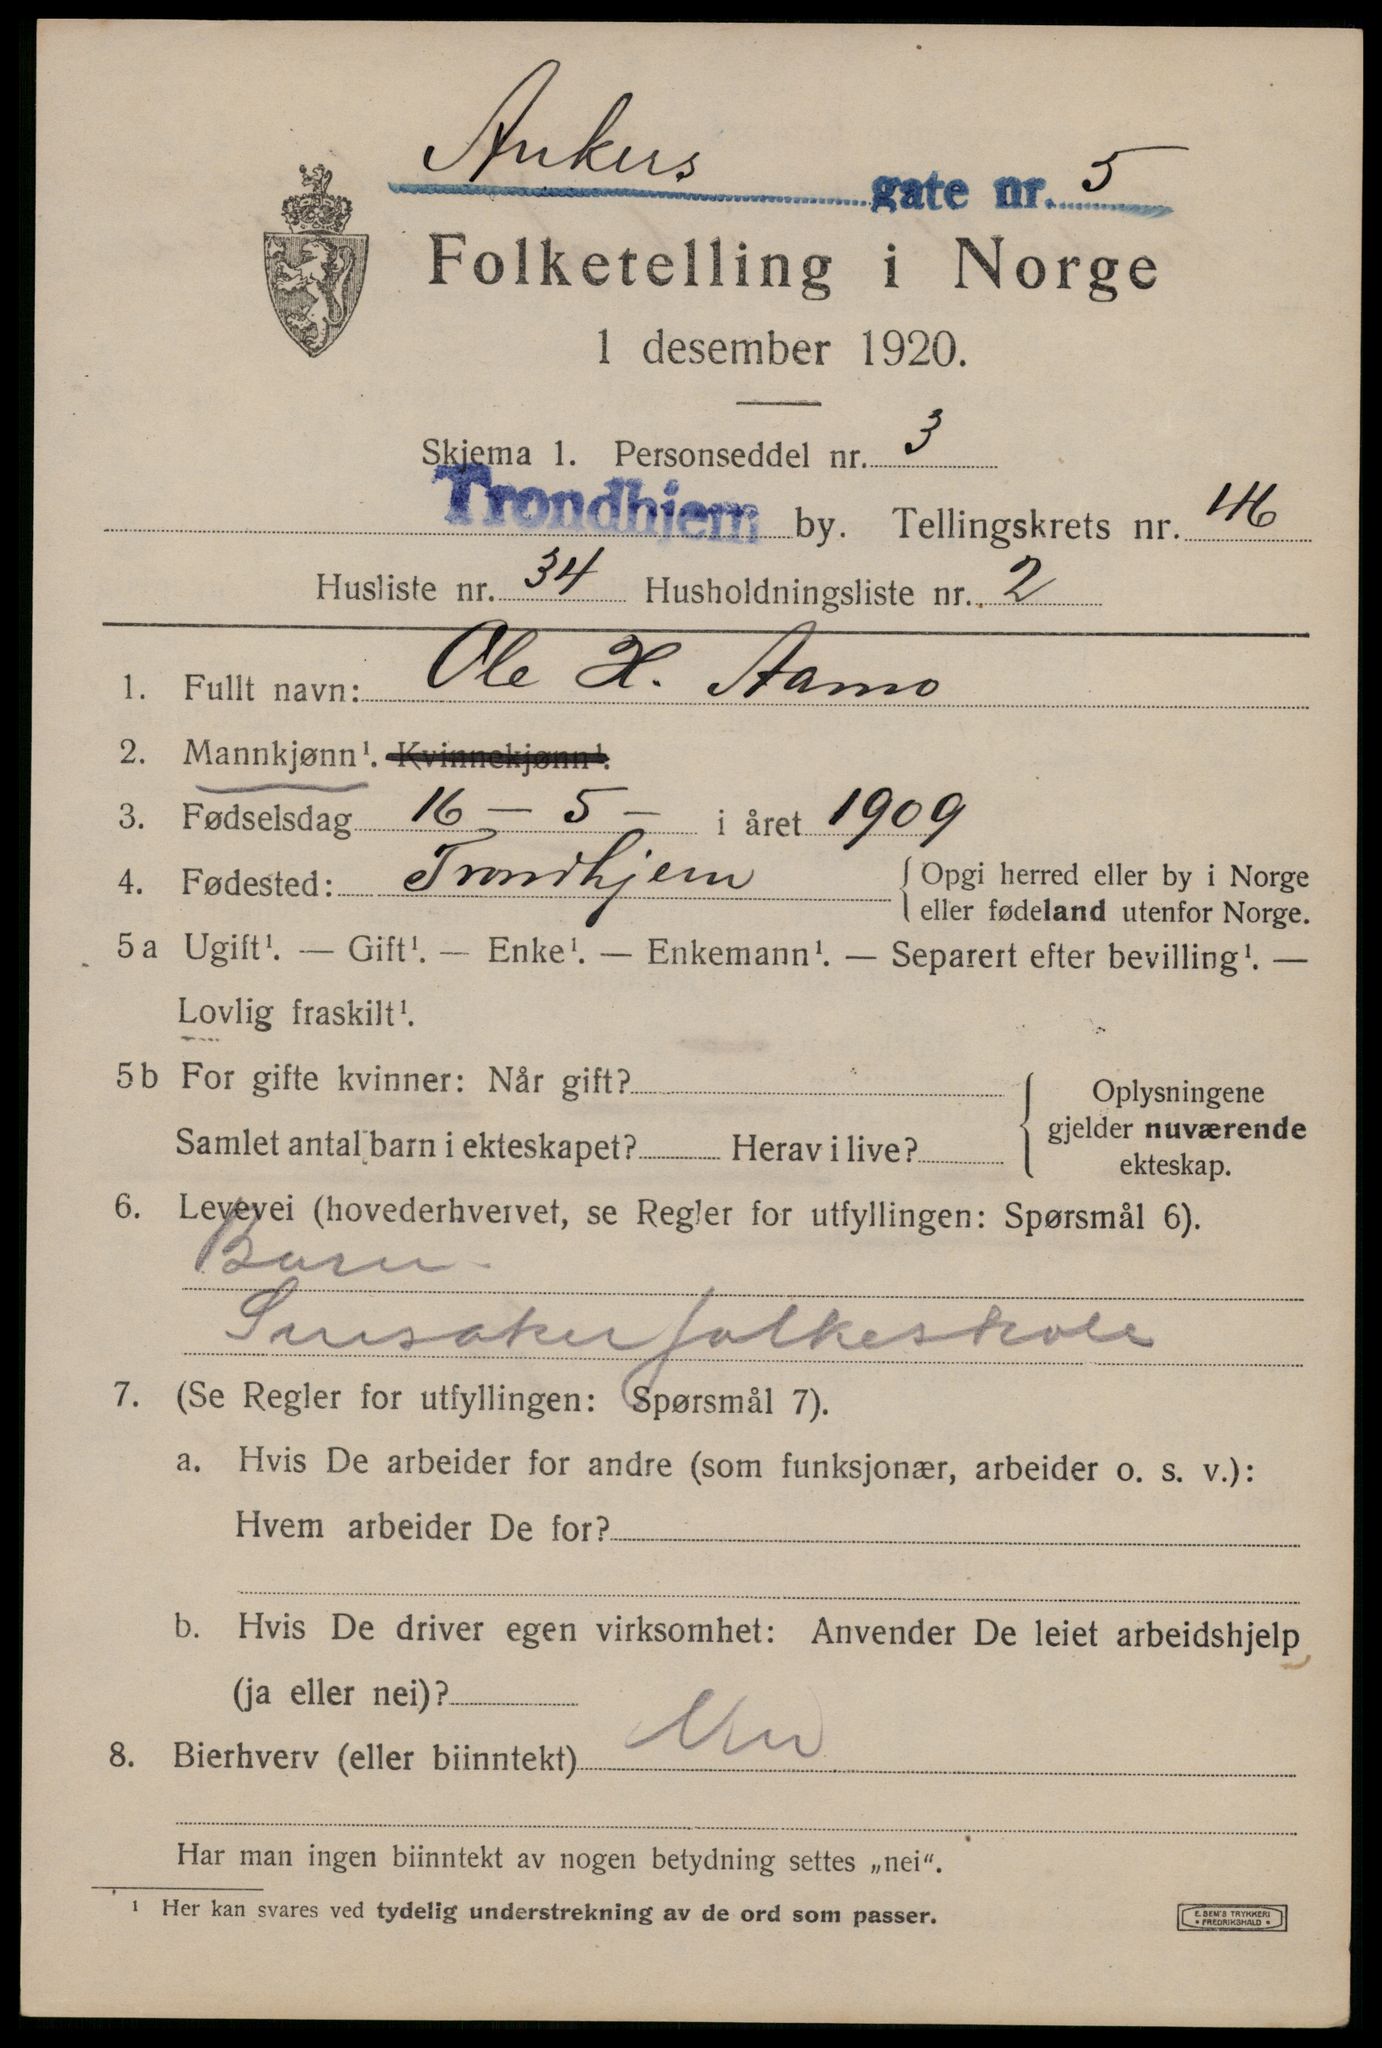 Ankers gate nr. 5
Folketelling i Norge
1 desember 1920.
Skjema 1. Personseddel nr. 3
Trondhjem by. Tellingskrets nr. 46
Husliste nr. 34 Husholdningsliste nr. 2
1. Fullt navn: Ole H. Aamo
2. Mannkjønn¹. Kvinnekjønn¹.
3. Fødselsdag 16 — 5 — i året 1909
4. Fødested: Trondhjem { Opgi herred eller by i Norge
eller fødeland utenfor Norge.
5a Ugift¹. — Gift¹. — Enke¹. — Enkemann¹. — Separert efter bevilling¹. —
Lovlig fraskilt¹.
5b For gifte kvinner: Når gift?
Samlet antal barn i ekteskapet? Herav i live?
{ Oplysningene
gjelder nuværende
ekteskap.
6. Levevei (hovederhvervet, se Regler for utfyllingen: Spørsmål 6).
Barn.
folkeskole
7. (Se Regler for utfyllingen: Spørsmål 7).
a. Hvis De arbeider for andre (som funksjonær, arbeider o. s. v.):
Hvem arbeider De for?
b. Hvis De driver egen virksomhet: Anvender De leiet arbeidshjelp
(ja eller nei)?
8. Bierhverv (eller biinntekt) Nei
Har man ingen biinntekt av nogen betydning settes „nei“.
¹ Her kan svares ved tydelig understrekning av de ord som passer.
E. SEM'S TRYKKERI
• FREDRIKSHALD •